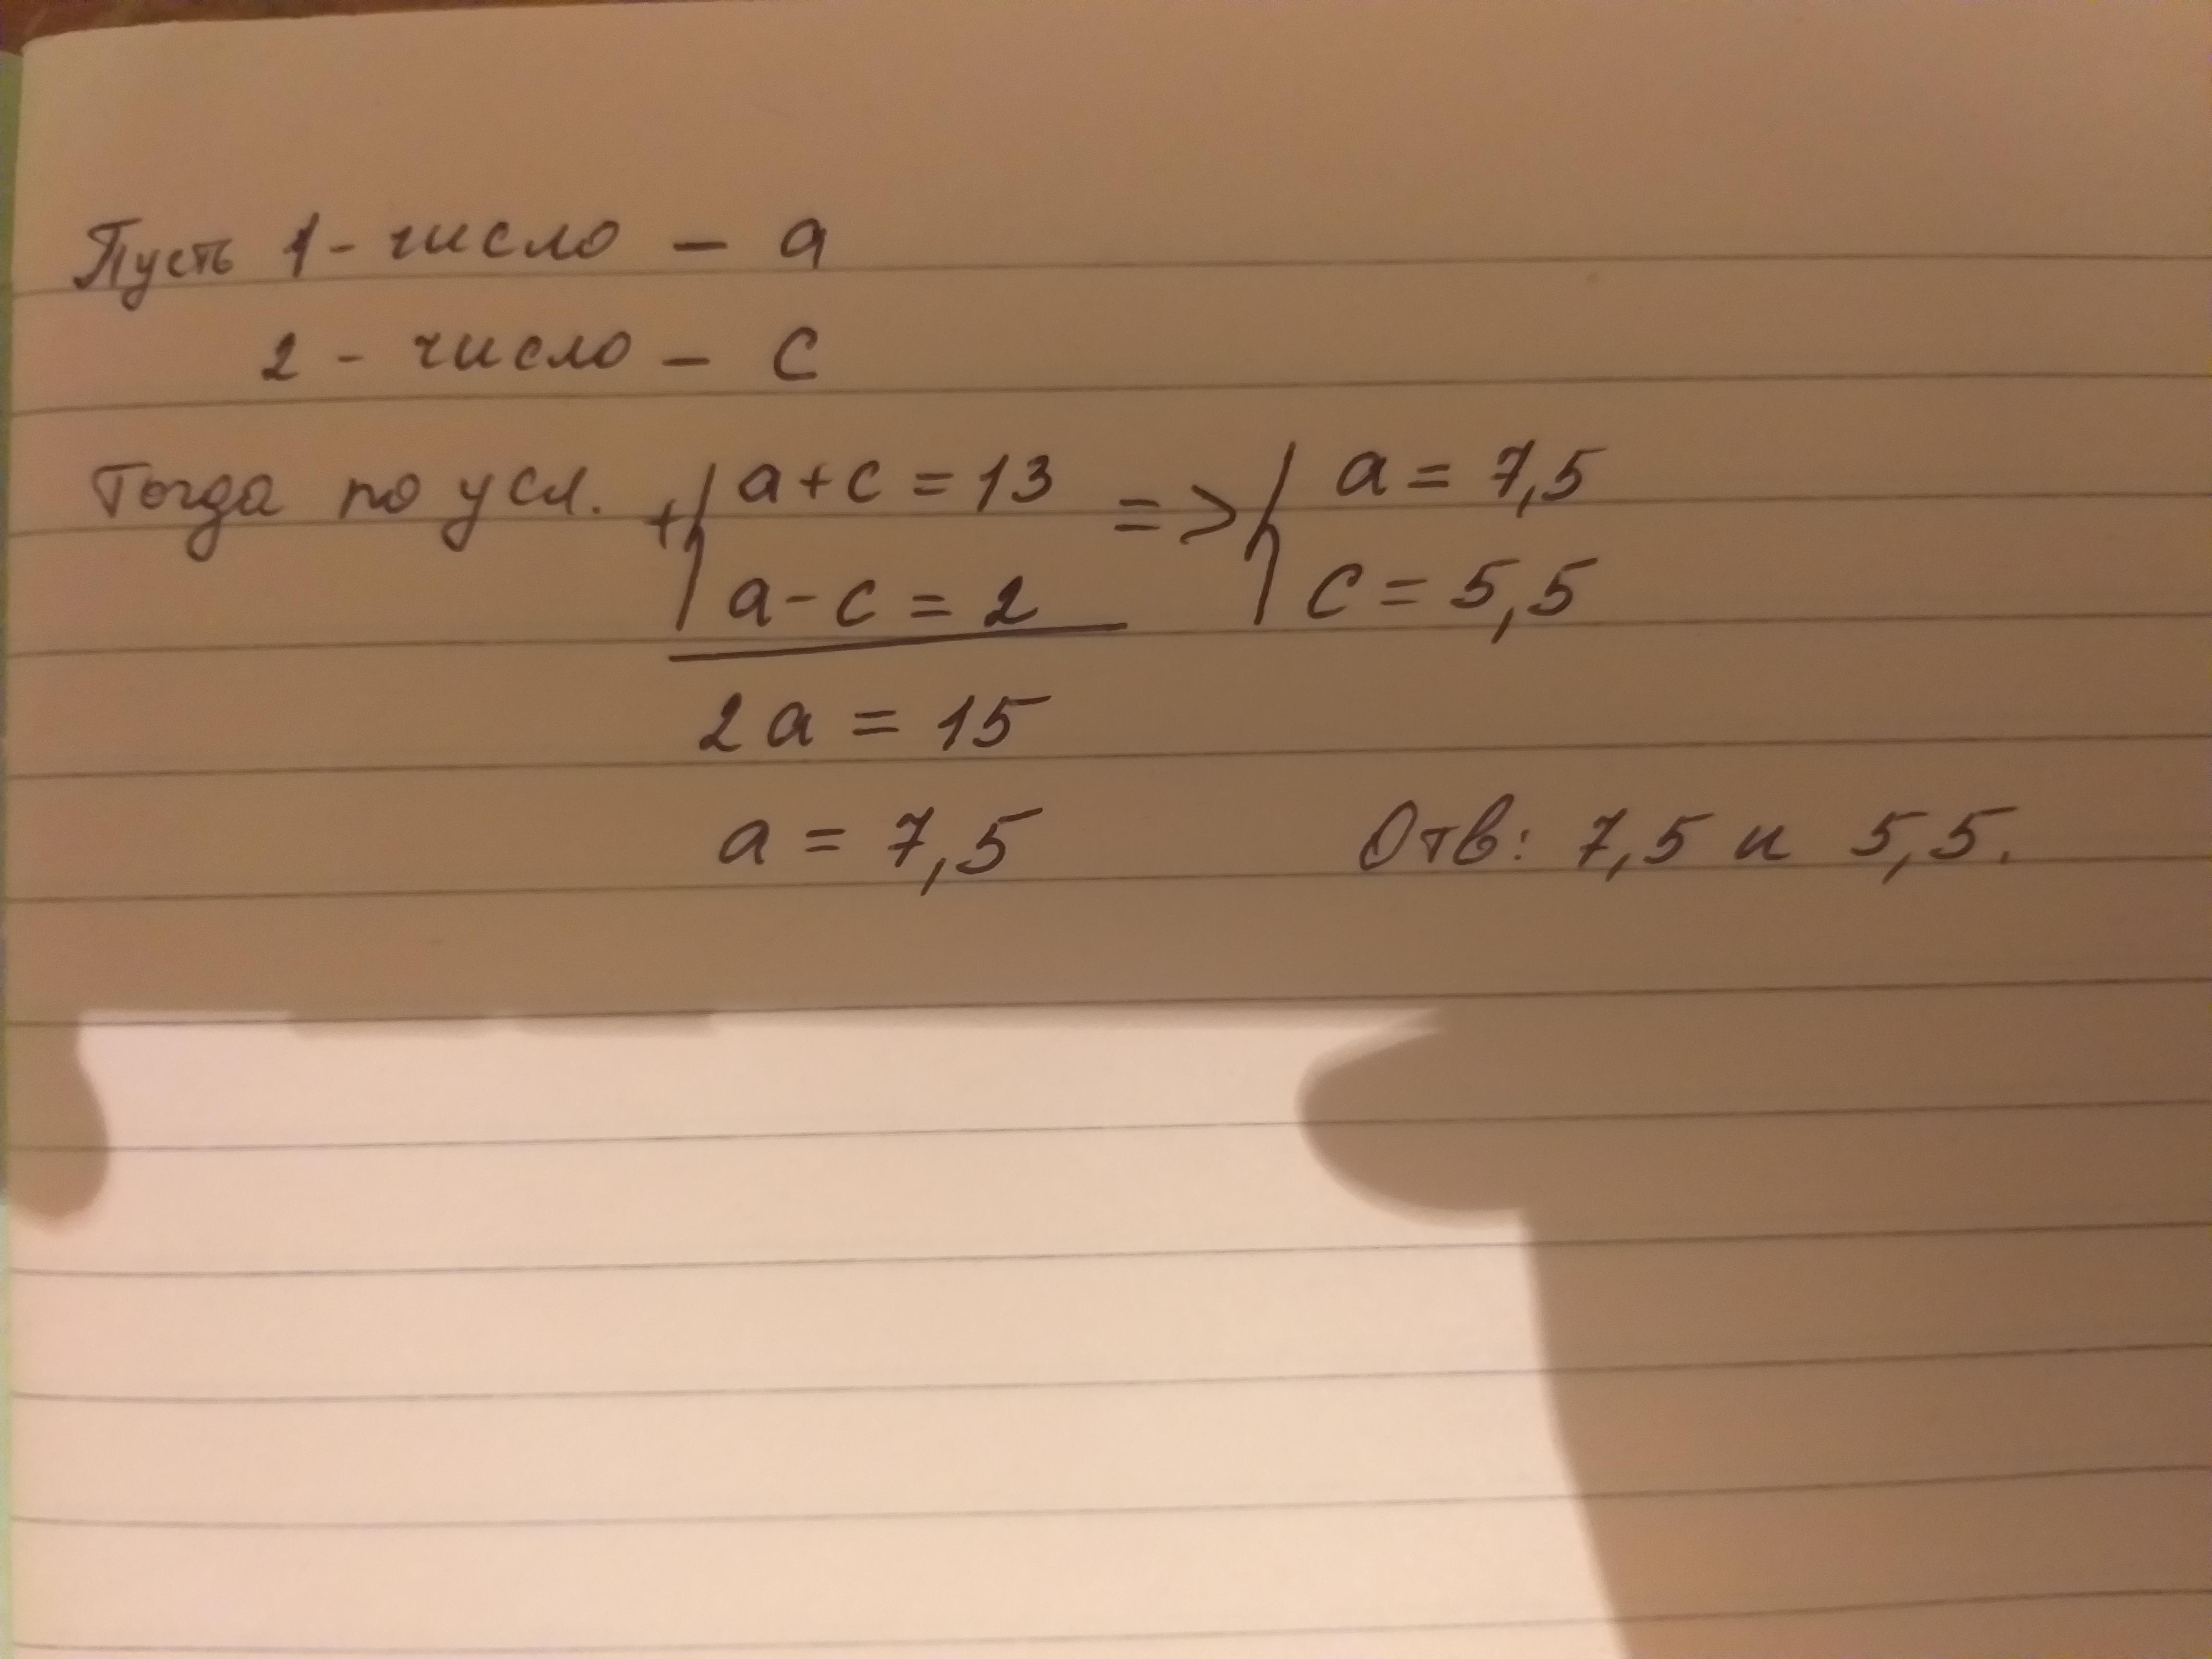 Пусть 1 - число - a
2 - число - c
Тогда по усл. + { a + c = 13 => { a = 7,5
a - c = 2 c = 5,5
2a = 15
a = 7,5 Отв: 7,5 и 5,5.